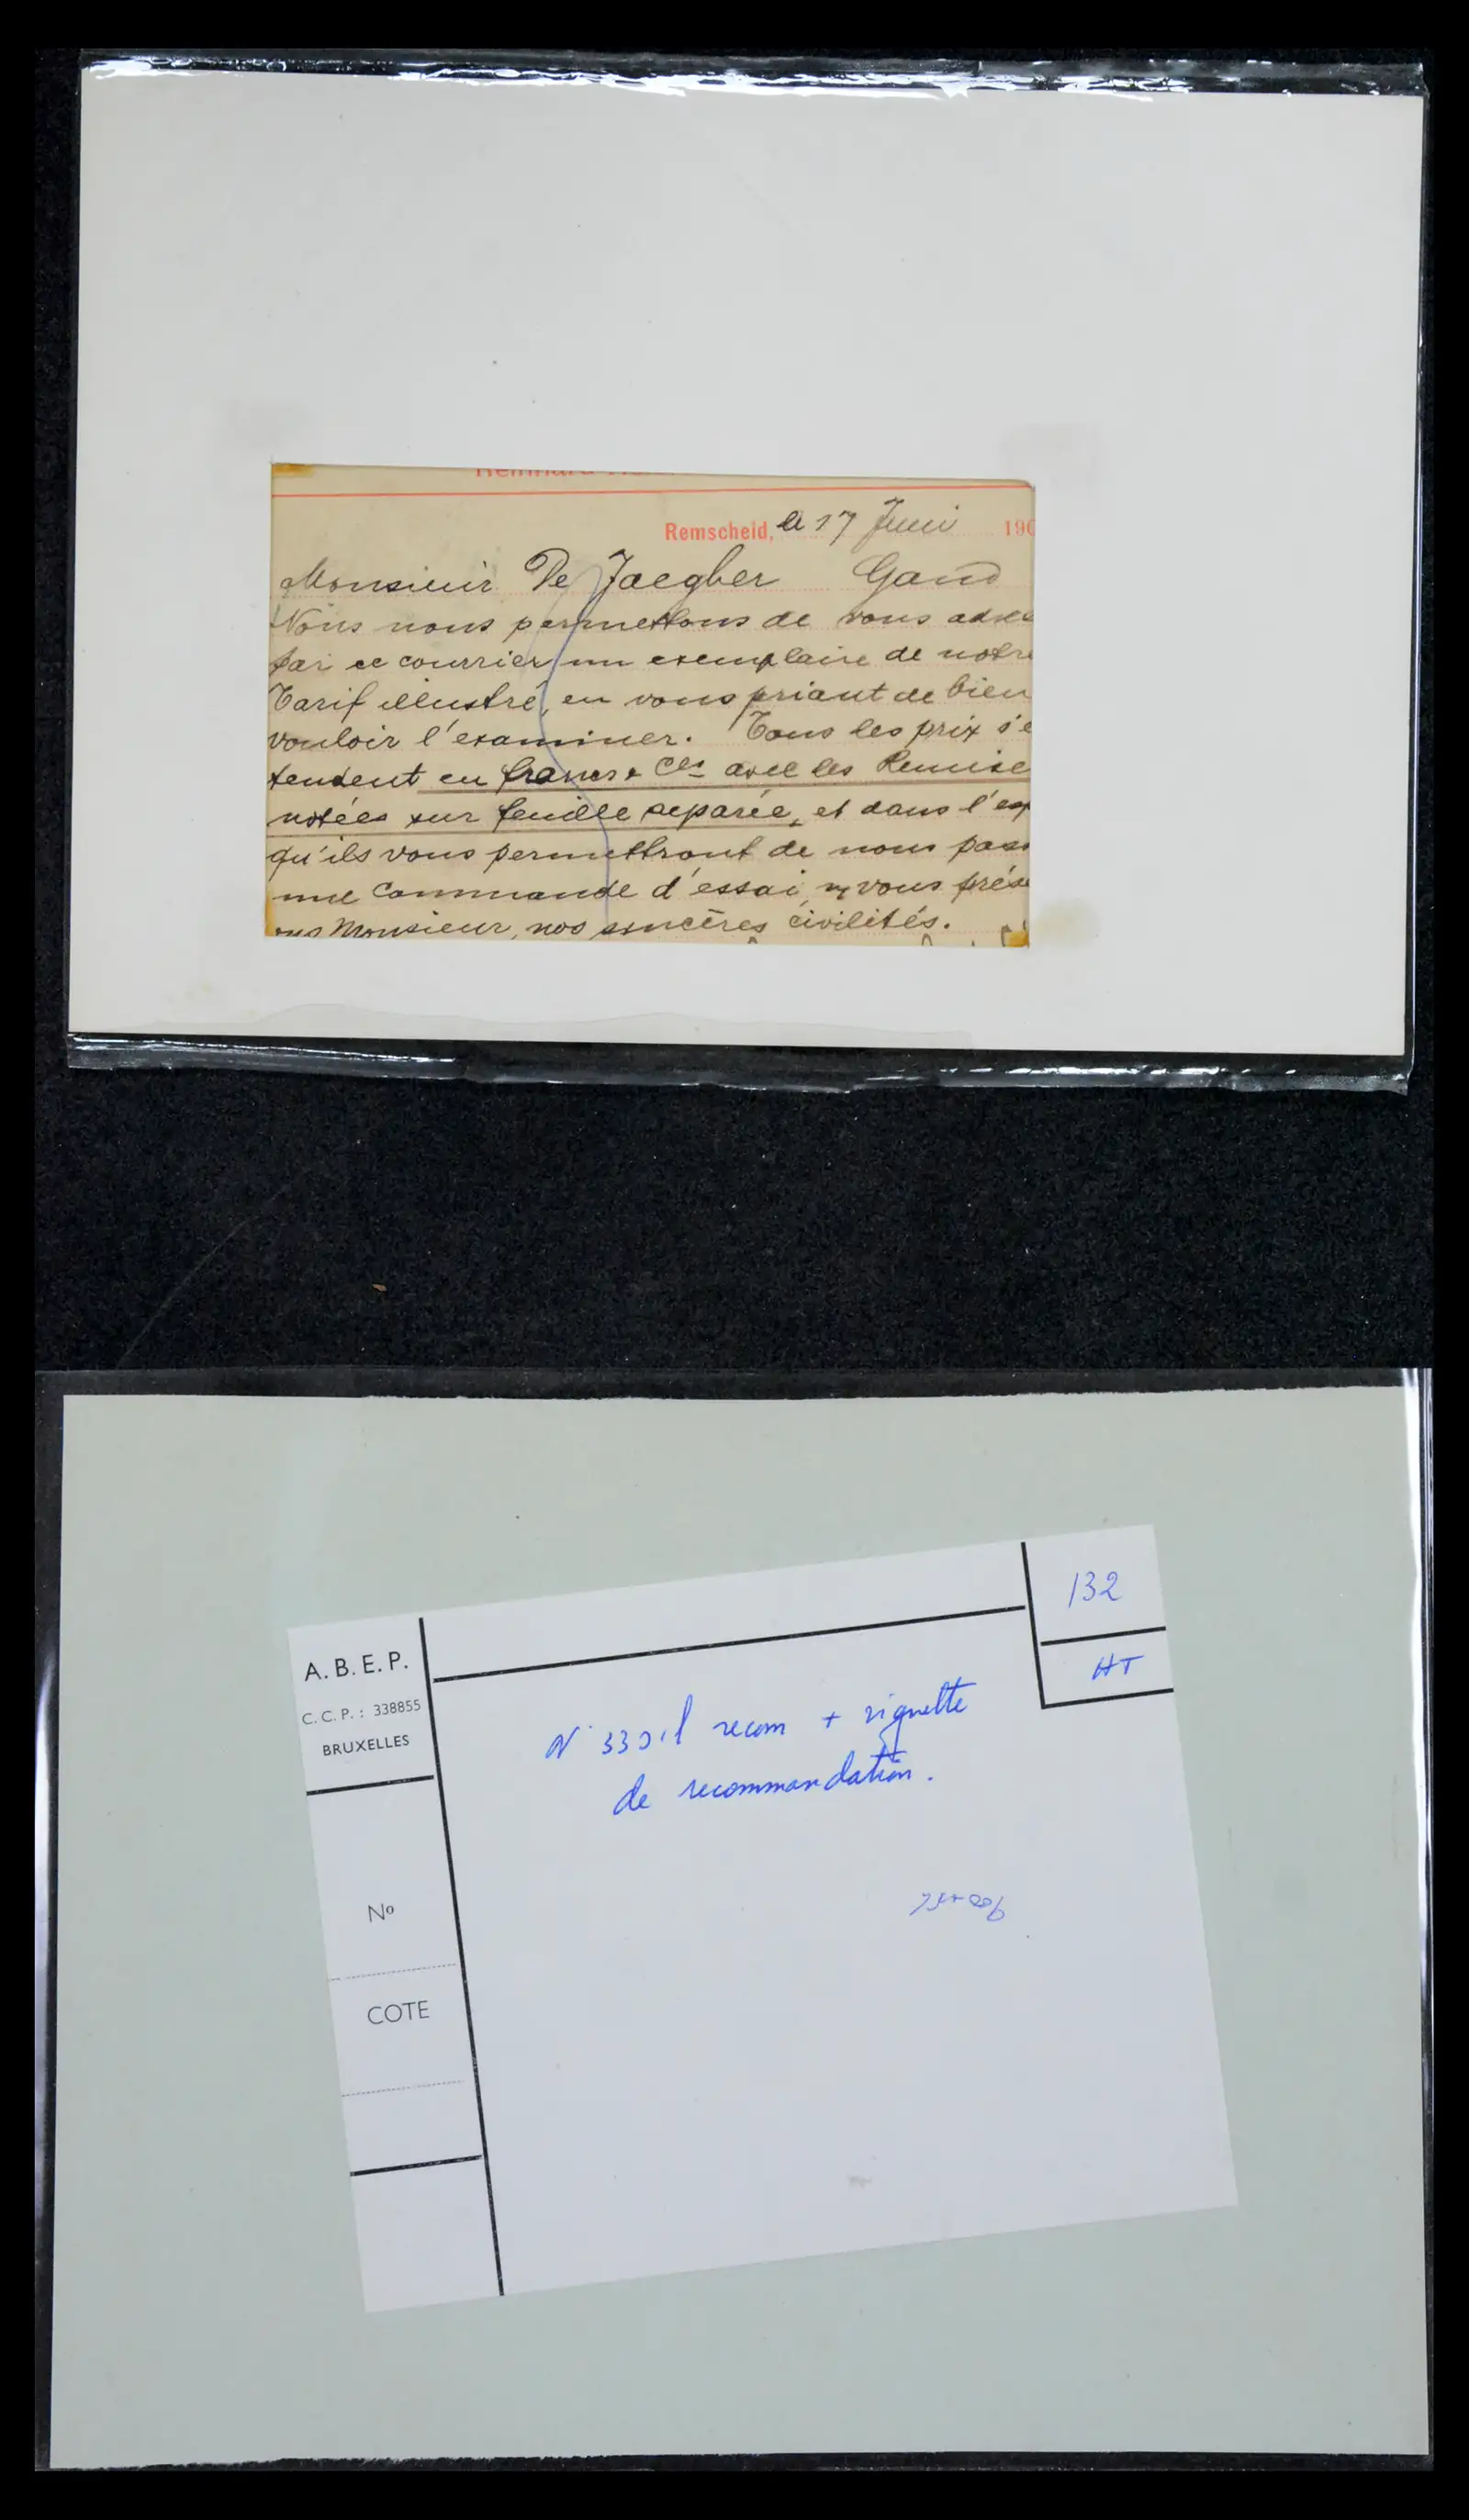 Remscheid, le 17 Juni 190
Monsieur De Jaegher Gand
Nous nous permettons de vous adres
par ce courrier un exemplaire de notre
Tarif illustré, en vous priant de bien
vouloir l'examiner. Tous les prix s'e
tendent en francs & Cts avec les Remise
notées sur feuille separée, et dans l'esp
qu'ils vous permettront de nous pass
une commande d'essai, vous prése
ons Monsieur, nos sincères civilités.
132
HT
A.B.E.P.
C.C.P.: 338855
BRUXELLES
recom + vignette
de recommandation.
Nº
COTE